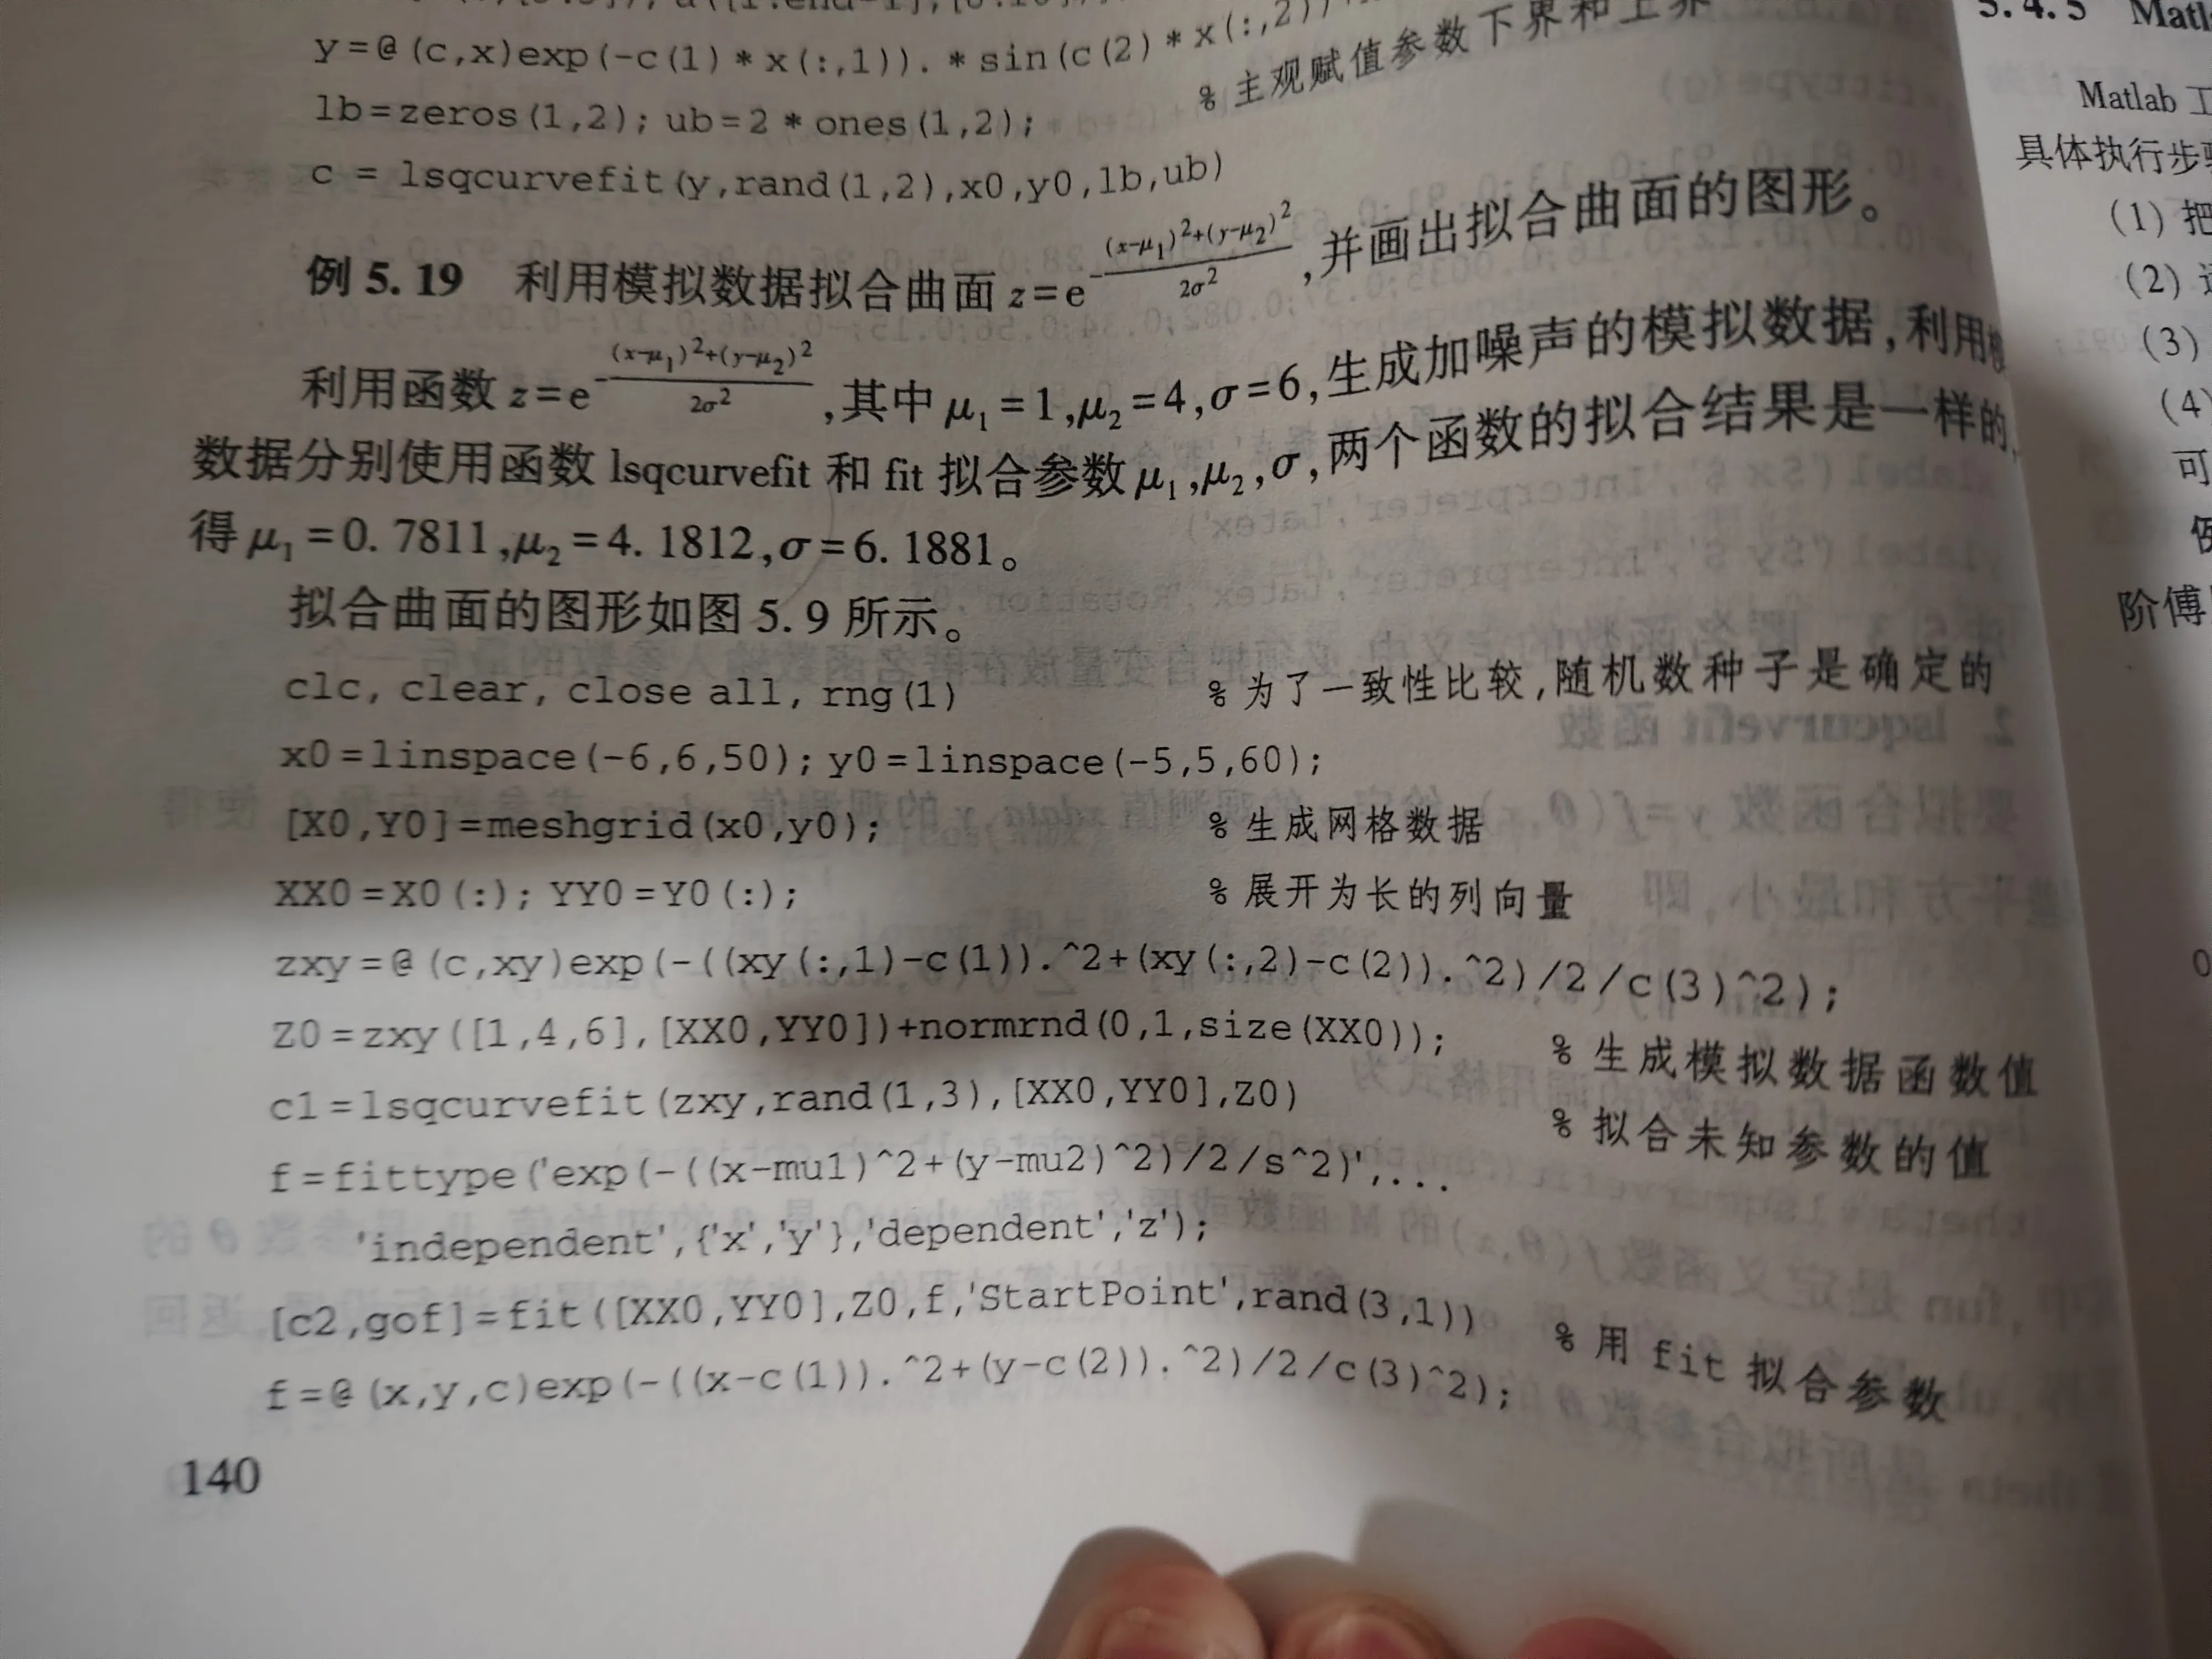 y=@(c,x)exp(-c(1)*x(:,1)).*sin(c(2)*x(:,2))
lb=zeros(1,2); ub=2*ones(1,2); %主观赋值参数下界和上界
c = lsqcurvefit(y,rand(1,2),x0,y0,lb,ub)
例 5.19 利用模拟数据拟合曲面 z=e^{-\frac{(x-μ₁)²+(y-μ₂)²}{2σ²}},并画出拟合曲面的图形。
利用函数 z=e^{-\frac{(x-μ₁)²+(y-μ₂)²}{2σ²}},其中 μ₁=1,μ₂=4,σ=6,生成加噪声的模拟数据,利用
数据分别使用函数 lsqcurvefit 和 fit 拟合参数 μ₁,μ₂,σ,两个函数的拟合结果是一样的,
得 μ₁=0.7811,μ₂=4.1812,σ=6.1881。
拟合曲面的图形如图 5.9 所示。
clc, clear, close all, rng(1) %为了一致性比较,随机数种子是确定的
x0=linspace(-6,6,50); y0=linspace(-5,5,60);
[X0,Y0]=meshgrid(x0,y0); %生成网格数据
XX0=X0(:); YY0=Y0(:); %展开为长的列向量
zxy=@(c,xy)exp(-((xy(:,1)-c(1)).^2+(xy(:,2)-c(2)).^2)/2/c(3)^2);
Z0=zxy([1,4,6],[XX0,YY0])+normrnd(0,1,size(XX0)); %生成模拟数据函数值
c1=lsqcurvefit(zxy,rand(1,3),[XX0,YY0],Z0) %拟合未知参数的值
f=fittype('exp(-((x-mu1)^2+(y-mu2)^2)/2/s^2)',...
'independent',{'x','y'},'dependent','z');
[c2,gof]=fit([XX0,YY0],Z0,f,'StartPoint',rand(3,1)) %用 fit 拟合参数
f=@(x,y,c)exp(-((x-c(1)).^2+(y-c(2)).^2)/2/c(3)^2);
140
5.4.5
Matlab 工
具体执行步
(1) 把
(2)
(3)
(4)
可
阶傅